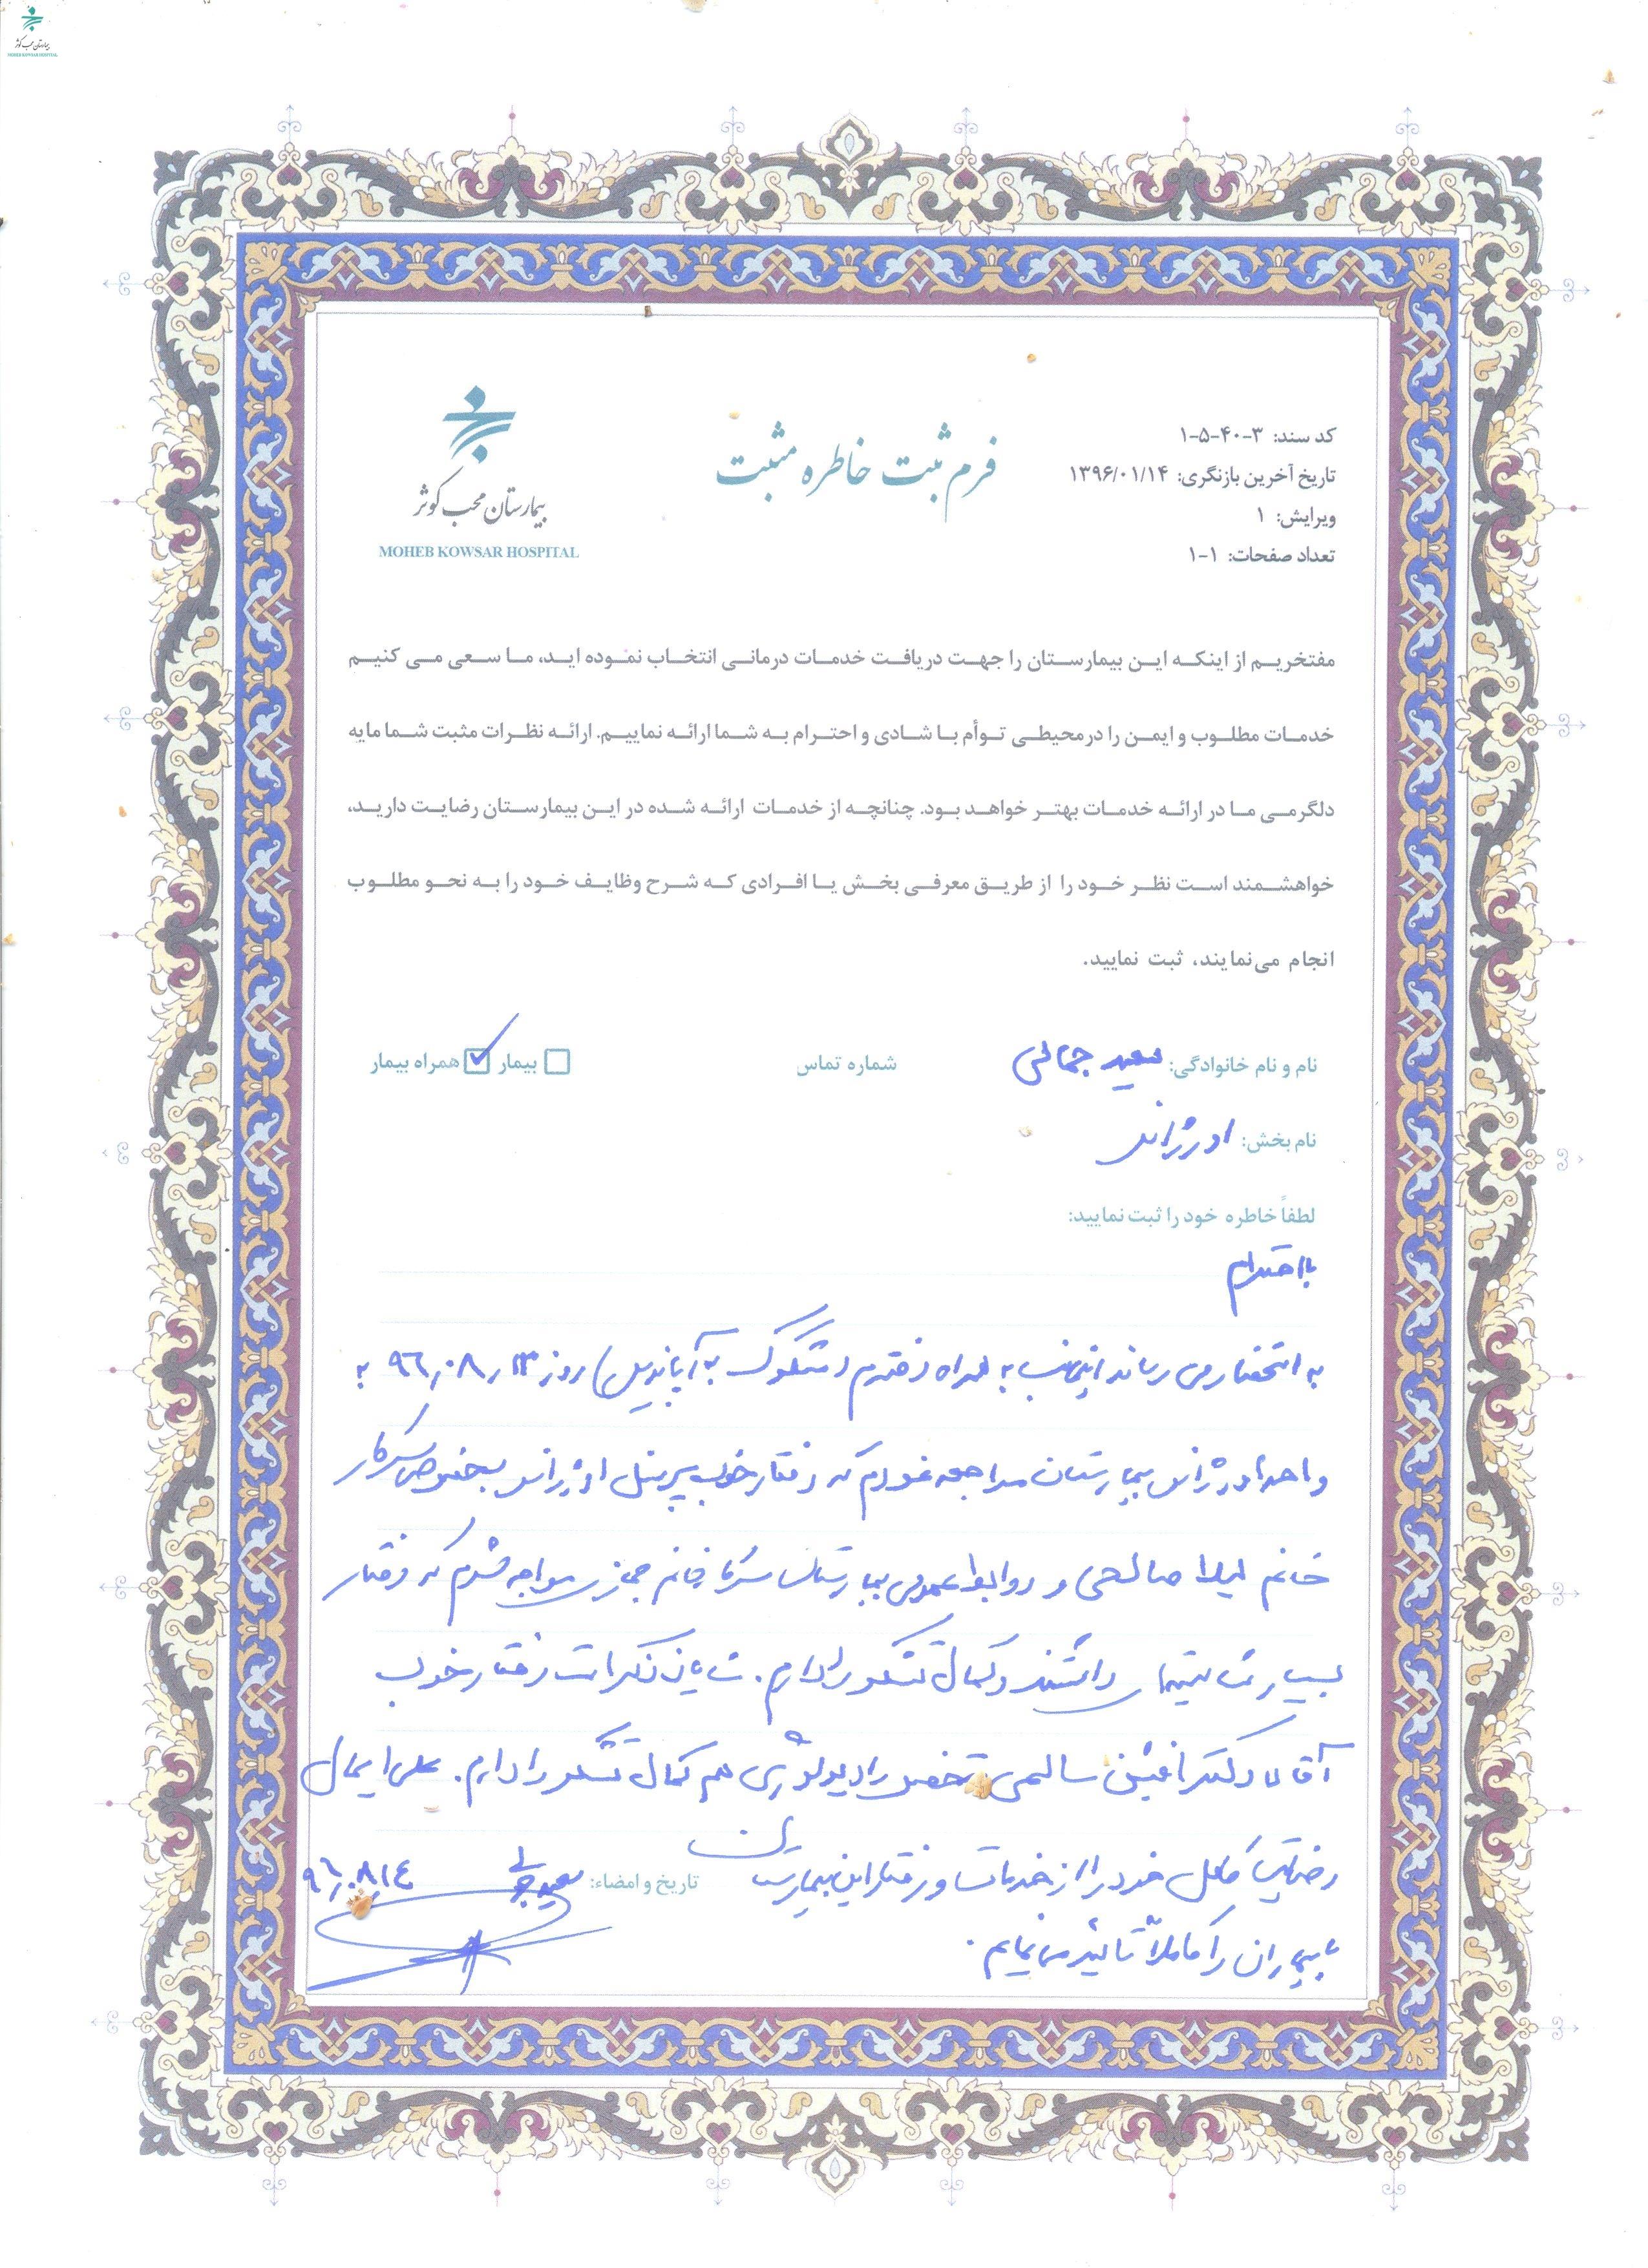 بیمارستان محب کوثر
MOHEB KOWSAR HOSPITAL
کد سند: ۳-۴۰-۵-۱
تاریخ آخرین بازنگری: ۱۳۹۶/۰۱/۱۴
ویرایش: ۱
تعداد صفحات: ۱-۱
فرم ثبت خاطره مثبت
بیمارستان محب کوثر
MOHEB KOWSAR HOSPITAL
مفتخریم از اینکه این بیمارستان را جهت دریافت خدمات درمانی انتخاب نموده اید، ما سعی می کنیم
خدمات مطلوب و ایمن را درمحیطی توأم با شادی و احترام به شما ارائه نماییم. ارائه نظرات مثبت شما مایه
دلگرمی ما در ارائه خدمات بهتر خواهد بود. چنانچه از خدمات ارائه شده در این بیمارستان رضایت دارید،
خواهشمند است نظر خود را از طریق معرفی بخش یا افرادی که شرح وظایف خود را به نحو مطلوب
انجام می‌نمایند، ثبت نمایید.
نام و نام خانوادگی: سعید جمالی شماره تماس بیمار همراه بیمار
نام بخش: اورژانس
لطفاً خاطره خود را ثبت نمایید:
با احترام
به استحضار می رساند اینجانب به همراه دخترم (مشکوک به آپاندیس) روز ۹۶/۰۸/۱۳ به
واحد اورژانس بیمارستان مراجعه نمودم که رفتار خوب پرسنل اورژانس بخصوص سرکار
خانم لیلا صالحی و روابط عمومی بیمارستان سرکار خانم مواجه شدم که رفتار
بسیار شایسته‌ای داشتند و کمال تشکر را دارم. شایان ذکر است رفتار خوب
آقای دکتر افشین سالمی تخصص رادیولوژی هم کمال تشکر را دارم. علی ایحال
رضایت کامل خود را از خدمات و رفتار این بیمارستان
تاریخ و امضاء: سعید جمالی ۹۶/۰۸/۱۴
با بیماران را کاملاً تائید می نمایم.